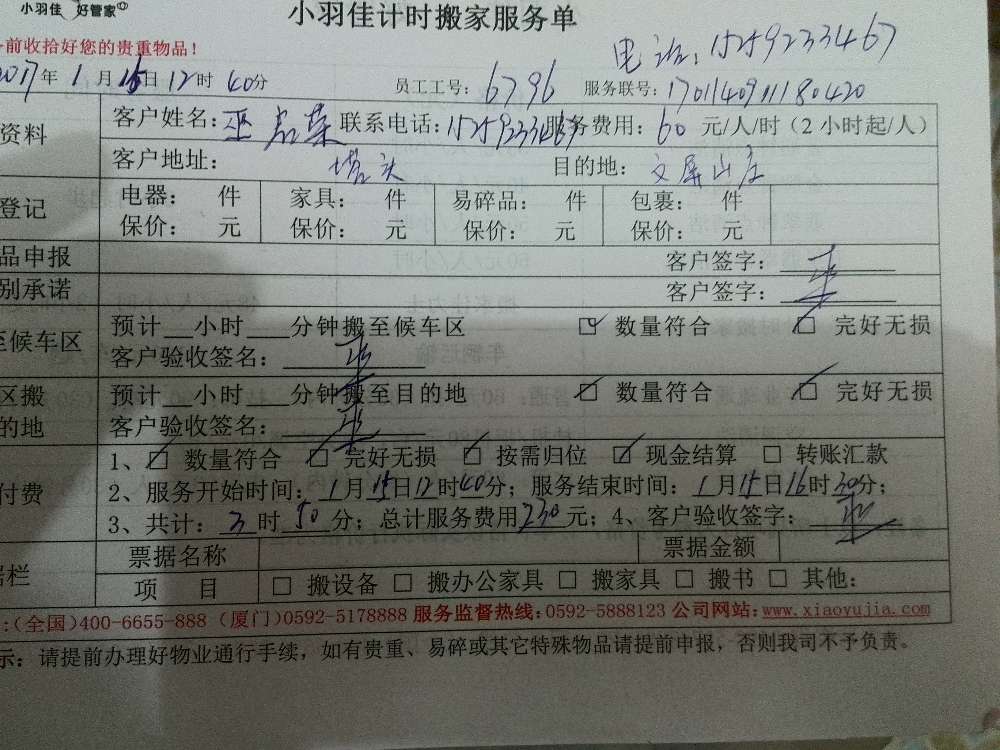 小羽佳 好管家
小羽佳计时搬家服务单
前收拾好您的贵重物品！
电话：15259233467
2017年1月15日12时40分 员工工号：6796 服务联号：170114091180420
资料 客户姓名：巫 联系电话：15259233467 服务费用：60元/人/时（2小时起/人）
客户地址：塔头 目的地：文屏山庄
登记 电器： 件 家具： 件 易碎品： 件 包裹： 件
保价： 元 保价： 元 保价： 元 保价： 元
品申报 客户签字：
别承诺 客户签字：
至候车区 预计__小时___分钟搬至候车区 ☑ 数量符合 ☑ 完好无损
客户验收签名：
区搬 预计__小时___分钟搬至目的地 ☑ 数量符合 ☑ 完好无损
的地 客户验收签名：
1、☑ 数量符合 ☑ 完好无损 ☑ 按需归位 ☑ 现金结算 □ 转账汇款
付费 2、服务开始时间：1月15日12时40分；服务结束时间：1月15日16时30分；
3、共计：3时50分；总计服务费用230元；4、客户验收签字：
票据名称 票据金额
据栏 项 目 □ 搬设备 □ 搬办公家具 □ 搬家具 □ 搬书 □ 其他：
:(全国)400-6655-888 (厦门)0592-5178888 服务监督热线:0592-5888123 公司网站:www.xiaoyujia.com
示：请提前办理好物业通行手续，如有贵重、易碎或其它特殊物品请提前申报，否则我司不予负责。